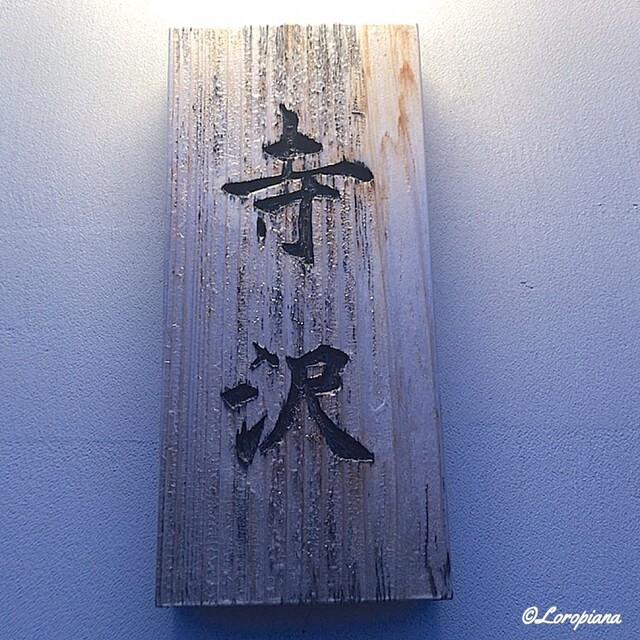 寺沢
©Loropiana